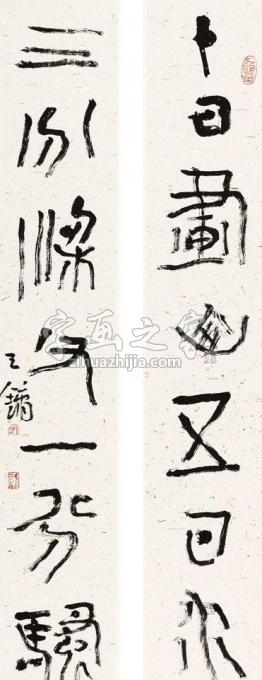 十日畫山五日水
三分梁父一分騷
王鏞
字画之家
zihuazhijia.com